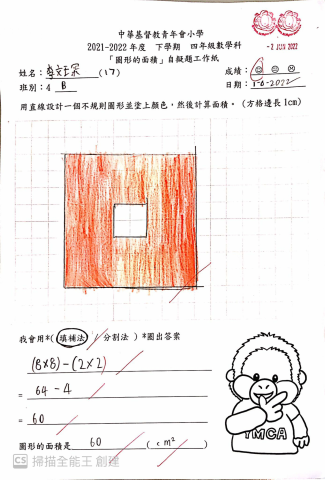 中華基督教青年會小學
2021-2022 年度 下學期 四年級數學科
- 2 JUN 2022
「圖形的面積」自擬題工作紙
姓名: (17) 成績:
班別: 4 B 日期: 1-6-2022
用直線設計一個不規則圖形並塗上顏色，然後計算面積。(方格邊長1cm)
我會用*( 填補法 / 分割法 ) *圈出答案
(8×8)-(2×2)
= 64 - 4
= 60
圖形的面積是 60 ( cm² )
YMCA
CS 掃描全能王 創建